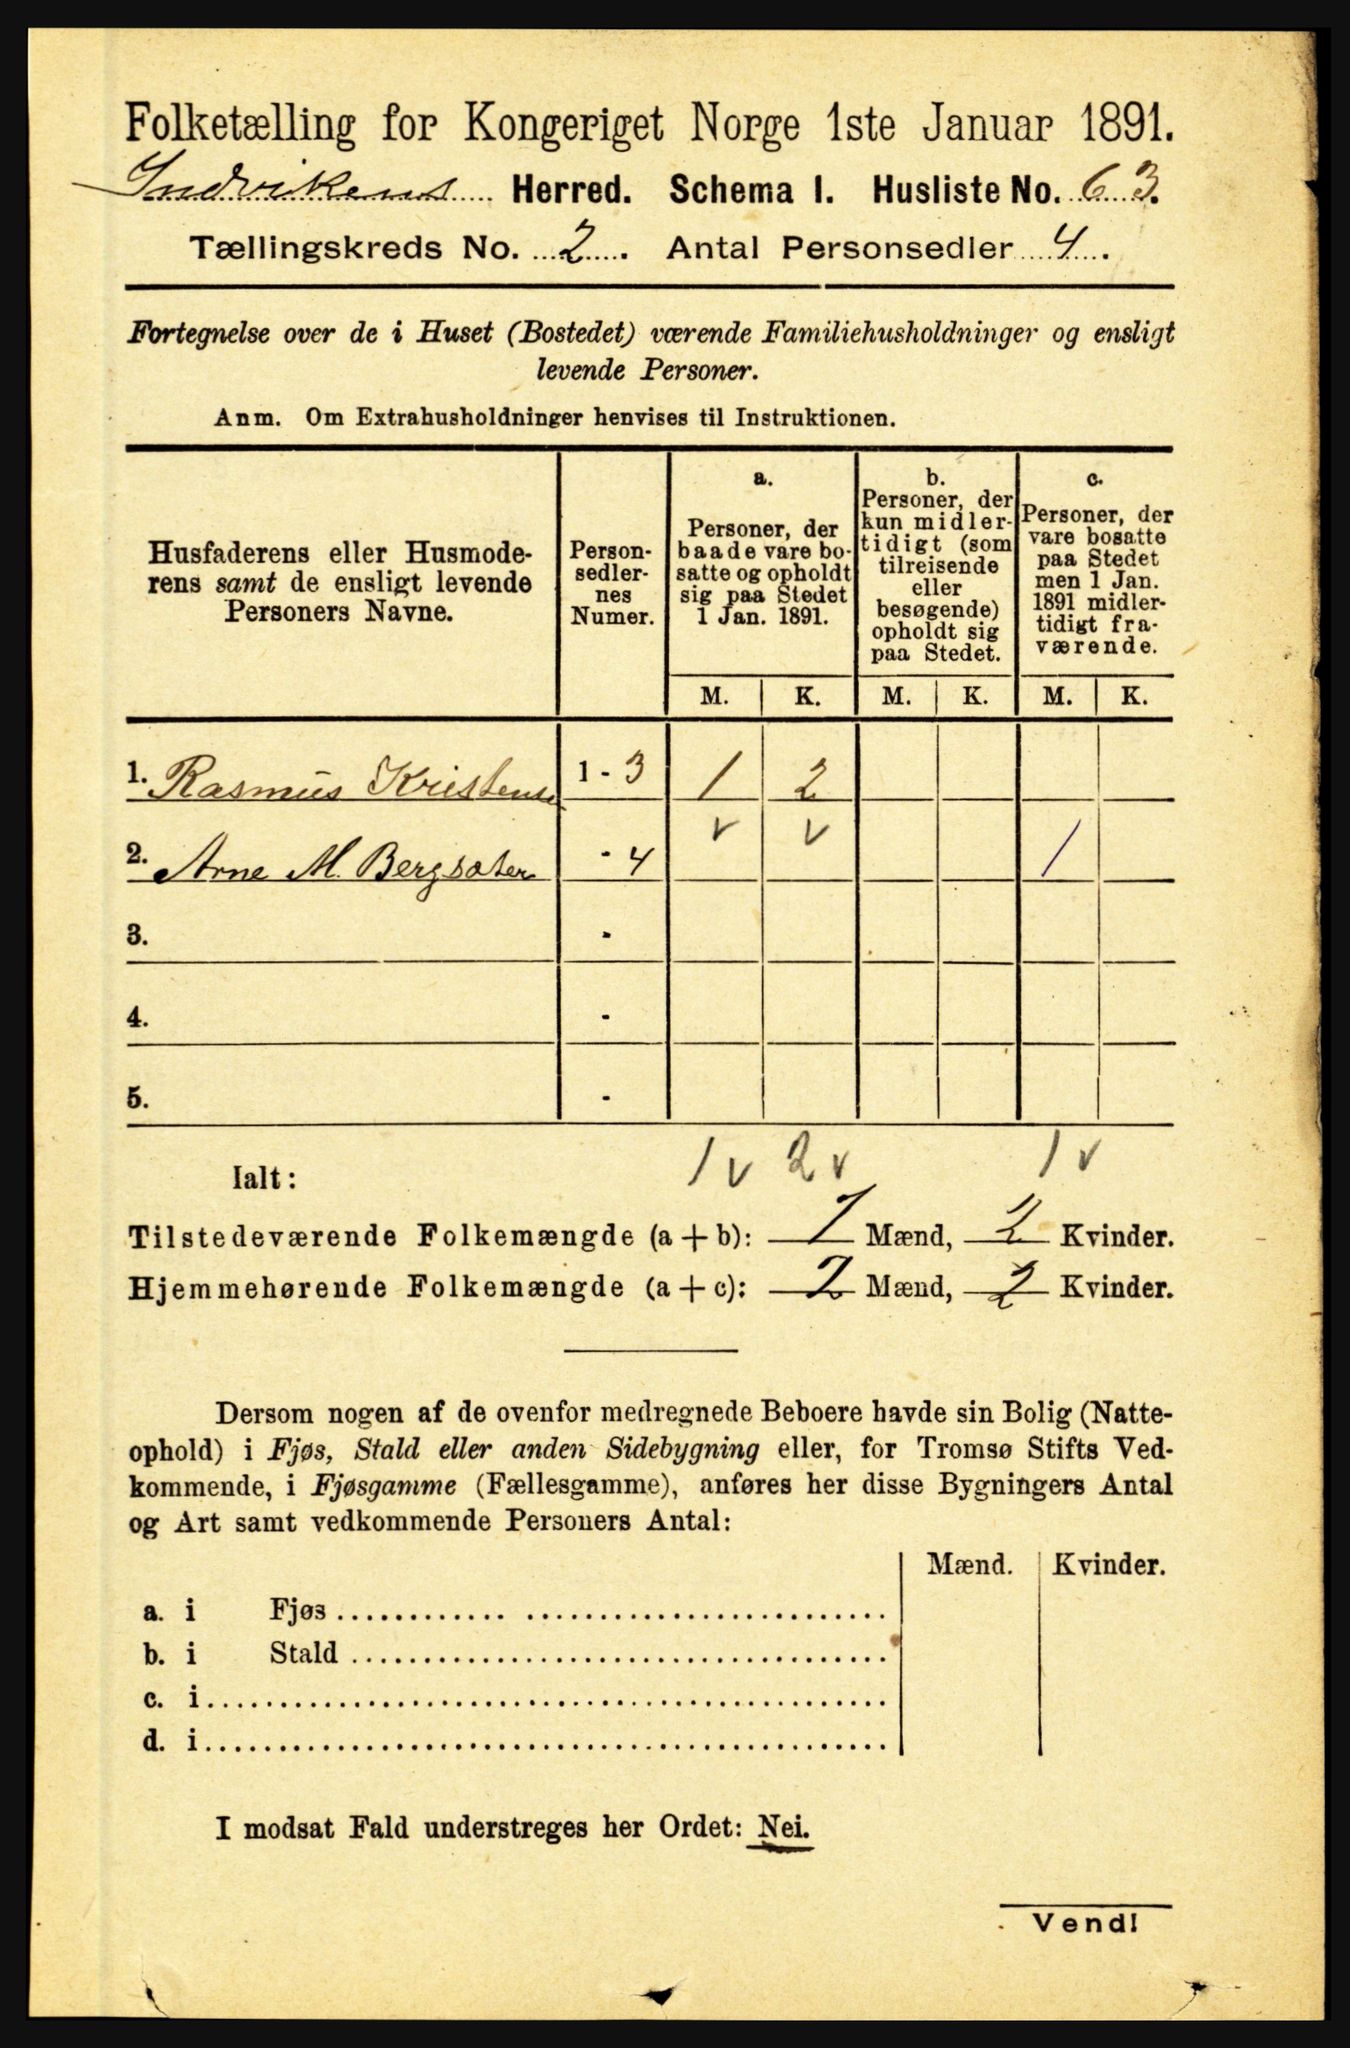 Folketælling for Kongeriget Norge 1ste Januar 1891.
Indvikens Herred. Schema I. Husliste No. 63.
Tællingskreds No. 2. Antal Personsedler 4.
Fortegnelse over de i Huset (Bostedet) værende Familiehusholdninger og ensligt
levende Personer.
Anm. Om Extrahusholdninger henvises til Instruktionen.
Husfaderens eller Husmode-
rens samt de ensligt levende
Personers Navne.
Person-
sedler-
nes
Numer.
a.
Personer, der
baade vare bo-
satte og opholdt
sig paa Stedet
1 Jan. 1891.
b.
Personer, der
kun midler-
tidigt (som
tilreisende
eller
besøgende)
opholdt sig
paa Stedet.
c.
Personer, der
vare bosatte
paa Stedet
men 1 Jan.
1891 midler-
tidigt fra-
værende.
M. K. M. K. M. K.
1. Rasmus Kristens 1 - 3 1 2
v v
2. Arne M. Bergsæter - 4 1
3. -
4. -
5. -
1 v 2 v 1 v
Ialt:
Tilstedeværende Folkemængde (a + b): 1 Mænd, 2 Kvinder.
Hjemmehørende Folkemængde (a + c): 2 Mænd, 2 Kvinder.
Dersom nogen af de ovenfor medregnede Beboere havde sin Bolig (Natte-
ophold) i Fjøs, Stald eller anden Sidebygning eller, for Tromsø Stifts Ved-
kommende, i Fjøsgamme (Fællesgamme), anføres her disse Bygningers Antal
og Art samt vedkommende Personers Antal:
Mænd. Kvinder.
a. i Fjøs
b. i Stald
c. i
d. i
I modsat Fald understreges her Ordet: Nei.
Vend!